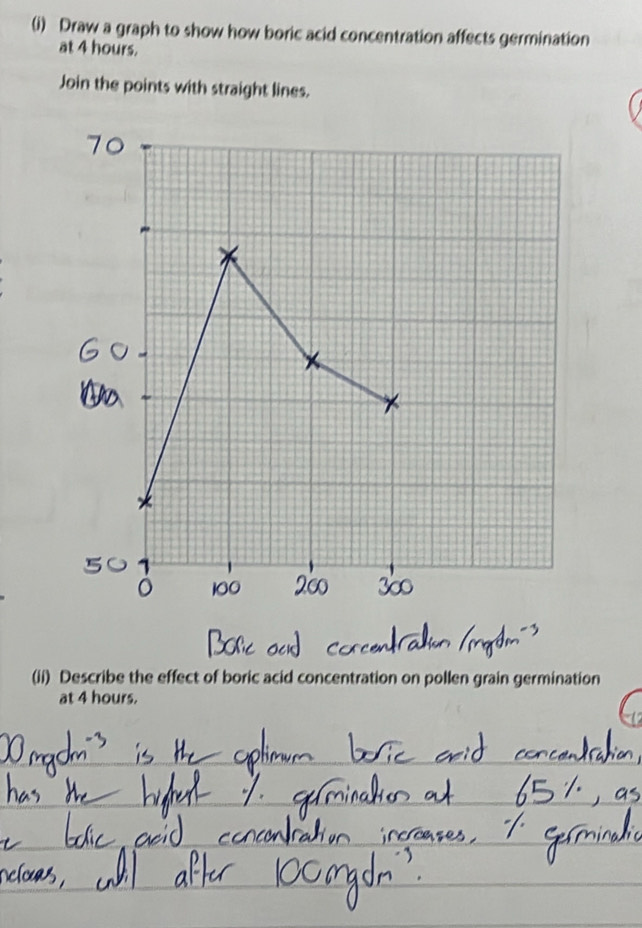 (i) Draw a graph to show how boric acid concentration affects germination
at 4 hours.
Join the points with straight lines.
70
60
50
0 100 200 300
Boric acid concentration /mgdm⁻³
(ii) Describe the effect of boric acid concentration on pollen grain germination
at 4 hours.
00mgdm⁻³ is the optimum boric acid concentration,
has the highest % germination at 65%, as
boric acid concentration increases, % germinatio
until after 100mgdm⁻³.